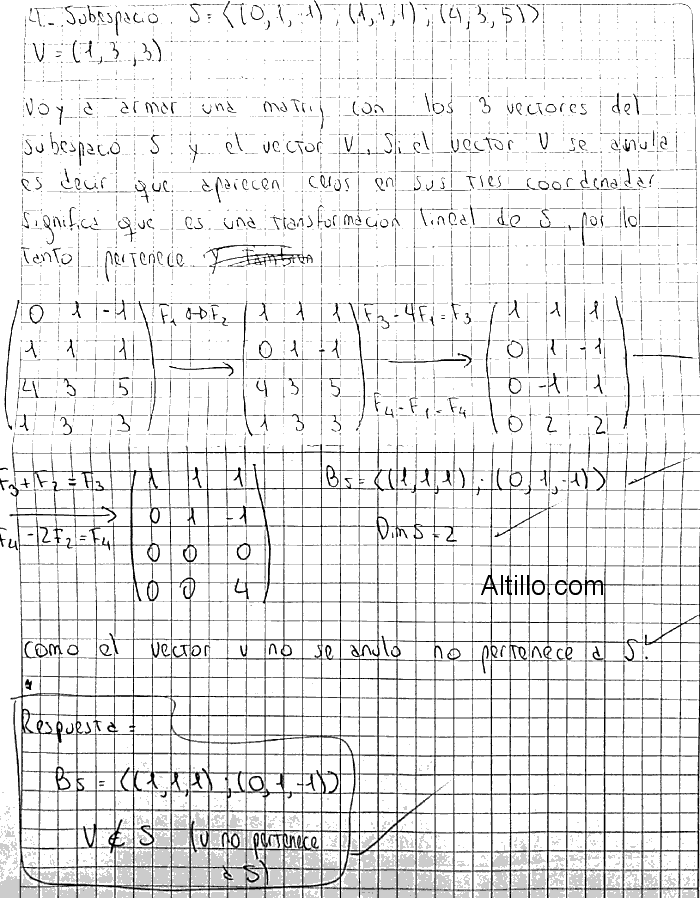 4- Subespacio S = <(0,1,-1) ; (1,1,1) ; (4,3,5)>
V = (1,3,3)
Voy a armar una matriz con los 3 vectores del
subespacio S y el vector V. Si el vector V se anula
es decir que aparecen ceros en sus tres coordenadas
significa que es una transformacion lineal de S, por lo
tanto pertenece y Tambien
0 1 -1 F1 ↔ F2 1 1 1 F3 - 4F1 = F3 1 1 1
1 1 1 0 1 -1 0 1 -1
4 3 5 4 3 5 F4 - F1 = F4 0 -1 1
1 3 3 1 3 3 0 2 2
F3 + F2 = F3 1 1 1 BS = <(1,1,1) ; (0,1,-1)>
F4 - 2F2 = F4 0 1 -1 Dim S = 2
0 0 0
0 0 4
Altillo.com
como el vector v no se anulo no pertenece a S!
Respuesta =
BS = <(1,1,1) ; (0,1,-1)>
V ∉ S (v no pertenece
a S)